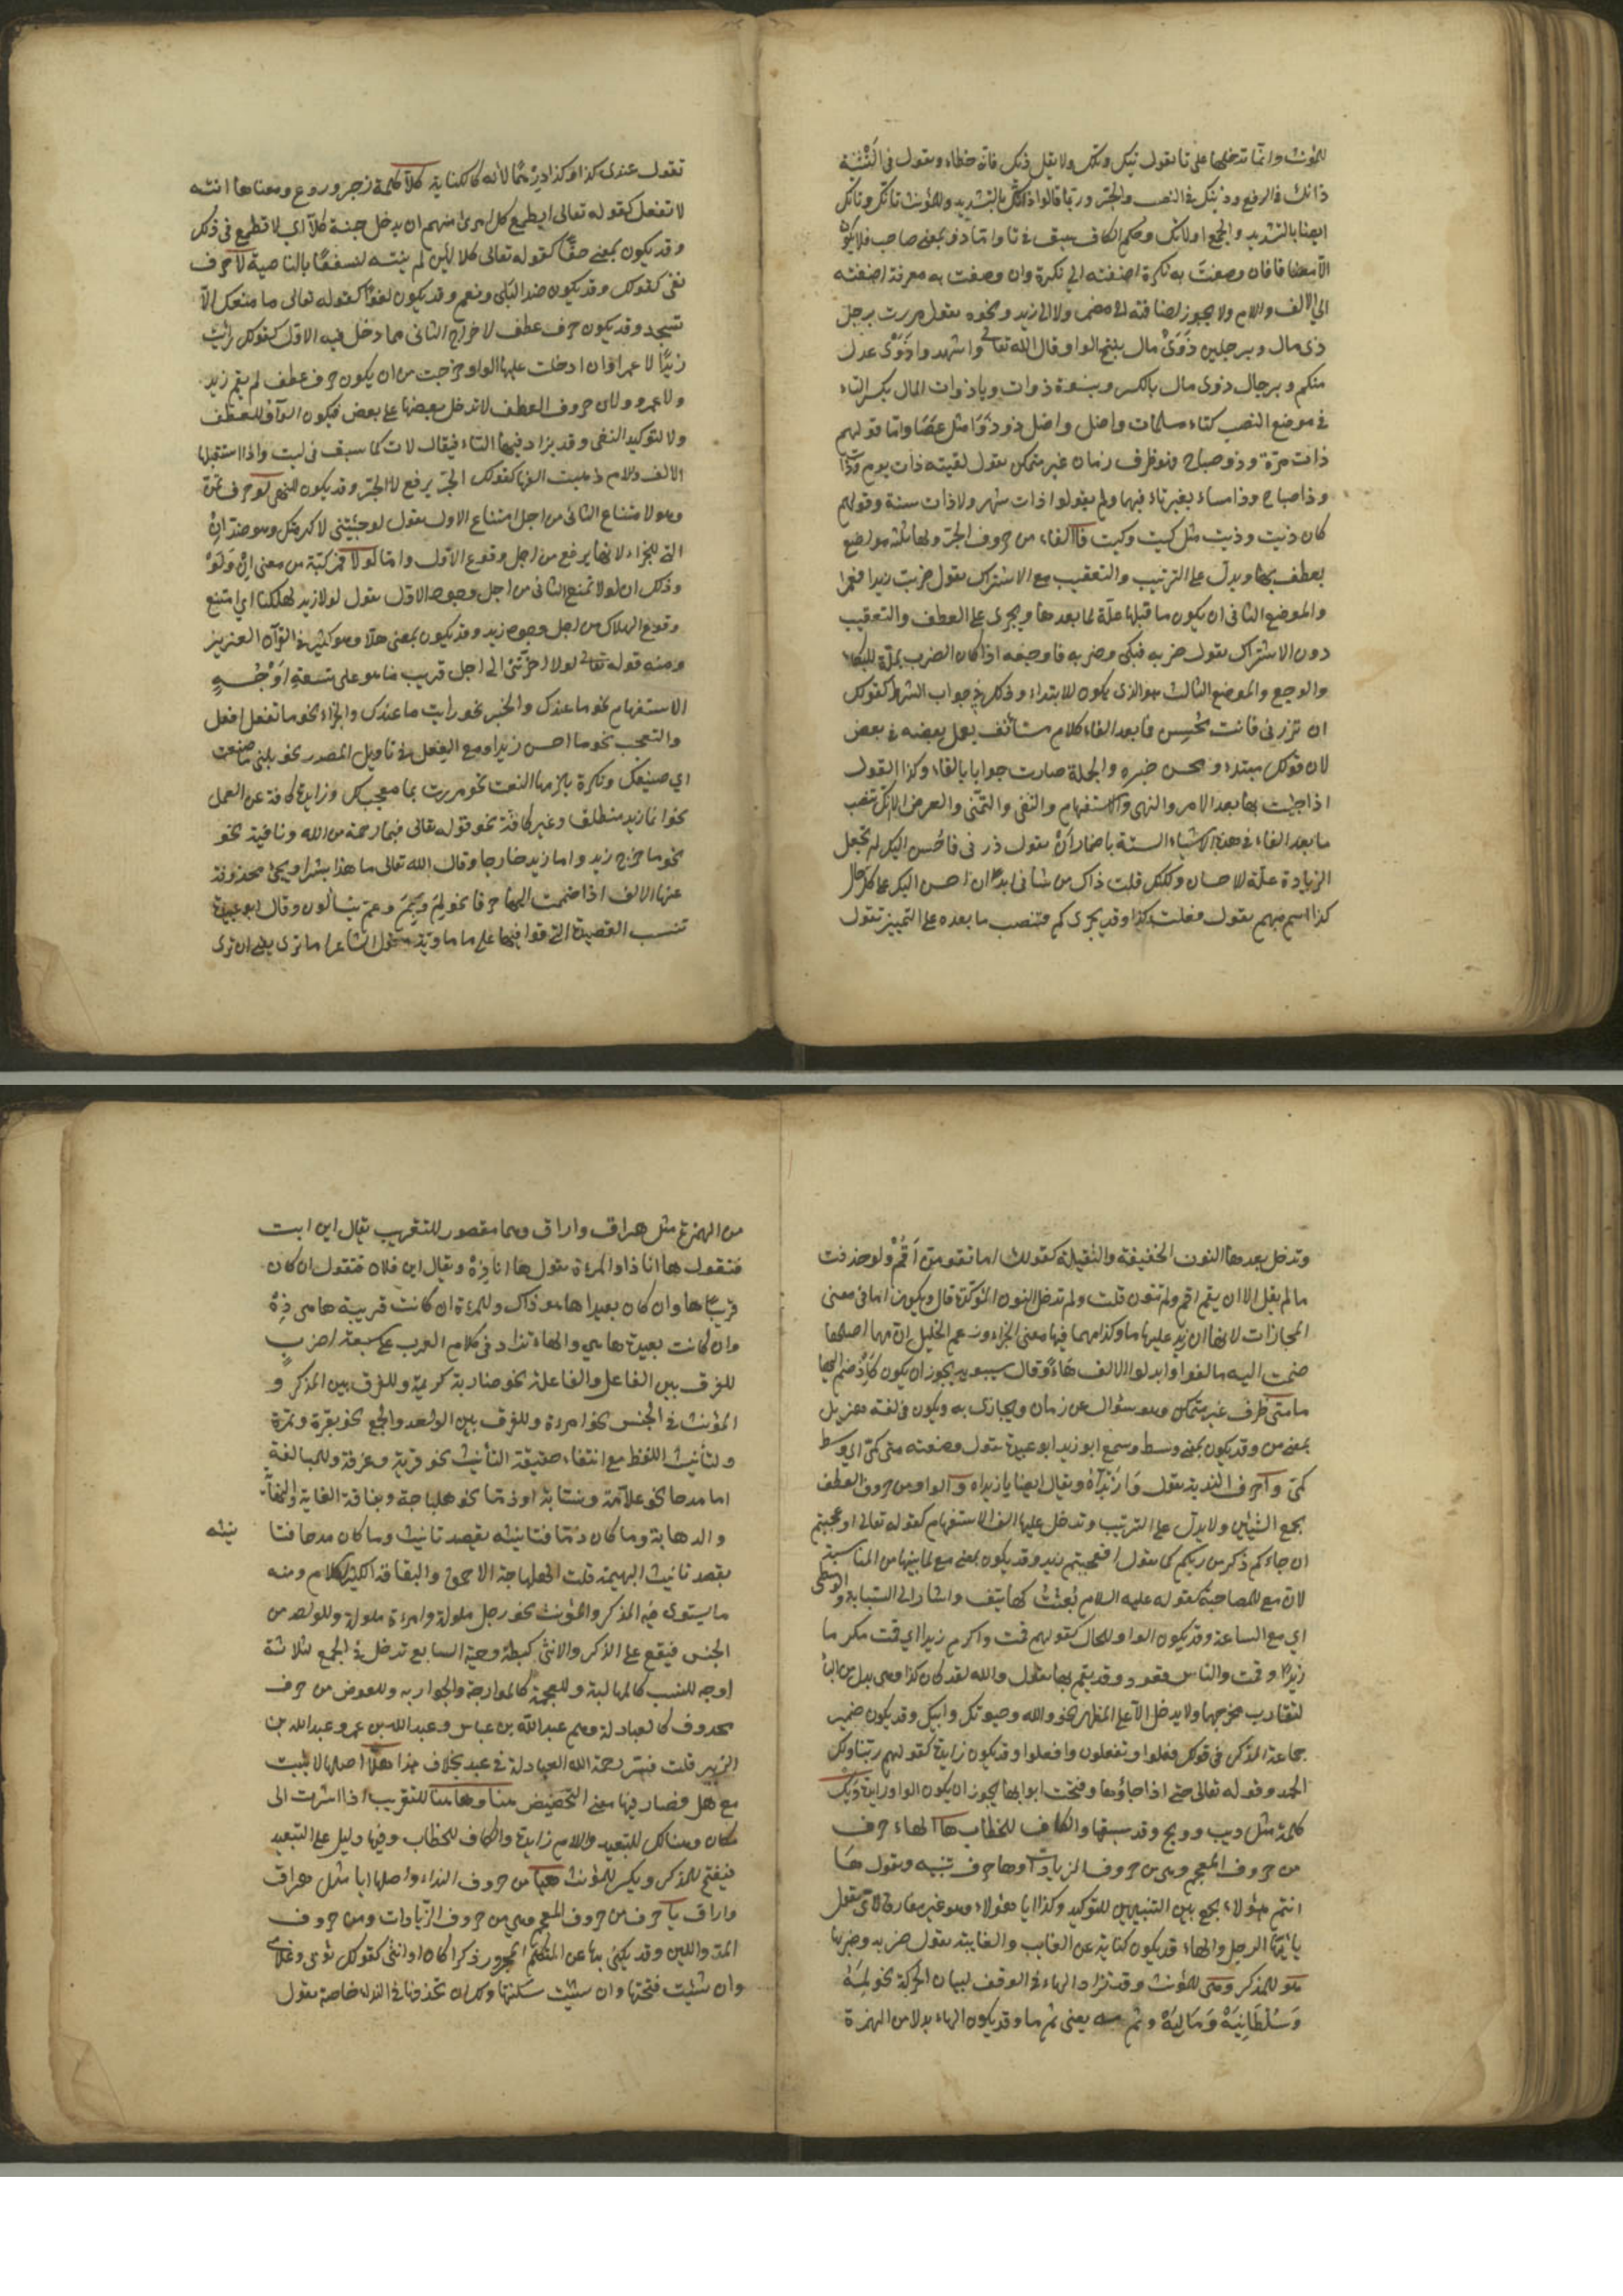 للمؤنث وانما تدخلها على تا تقول تيك وتلك ولا يقل ذيك فانه خطاء وتقول في التثنية
ذانك في الرفع وذينك في النصب والجر وربما قالوا ذانك بالتشديد وللمؤنث تانك وتانك
ايضا بالتشديد والجمع اولائك وحكم الكاف سبق في تا واما ذو بمعنى صاحب فلا يكون
الا مضافا فان وصفت به نكرة اضفته الى نكرة وان وصفت به معرفة اضفته
الى الالف واللام ولا يجوز اضافته الى مضمر ولا الى زيد ونحوه تقول مررت برجل
ذي مال وبرجلين ذَوَيْ مال بفتح الواو قال الله تعالى واشهدوا ذَوَيْ عدل
منكم وبرجال ذوي مال بالكسر وبنسوة ذوات ويا ذوات المال بكسر التاء
في موضع النصب كتاء مسلمات واصل ذو ذَوًا مثل عصًا واما قولهم
ذات مرة وذو صباح فهو ظرف زمان غير متمكن تقول لقيته ذات يوم
وذا صباح وذا مساء بغير تاء فيهما ولم يقولوا ذات شهر ولا ذات سنة وقولهم
كان ذيت وذيت مثل كيت وكيت فا الفاء من حروف الجر ولها ثلثة مواضع
يعطف بها ويدل على الترتيب والتعقيب مع الاشتراك تقول ضربت زيدا فعمرا
والموضع الثاني ان يكون ما قبلها علة لما بعدها ويجري على العطف والتعقيب
دون الاشتراك تقول ضربه فبكى وضربه فاوجعه اذا كان الضرب علة للبكاء
والوجع والموضع الثالث هو الذي يكون للابتداء وذلك في جواب الشرط كقولك
ان تزرني فانت محسن فما بعد الفاء كلام مستأنف يعمل بعضه في بعض
لان قولك مبتداء ومحسن خبره والجملة صارت جوابا بالفاء وكذا القول
اذا جئت بها بعد الامر والنهي والاستفهام والنفي والتمني والعرض الا انك تنصب
ما بعد الفاء في هذه الاشياء الستة باضمار أنْ تقول زرني فاحسن اليك لم تجعل
الزيادة علة للاحسان ولكنك قلت ذاك من شأني ابدا ان احسن اليك على كل حال
كذا اسم مبهم تقول فعلت كذا وقد يجري كم فتنصب ما بعده على التمييز تقول
تقول عندي كذا وكذا درهمًا لأنه كالكناية كلّا كلمة زجر وردع ومعناها انته
لا تفعل كقوله تعالى ايطمع كل امرئ منهم ان يدخل جنة كلا اي لا تطمع في ذلك
وقد يكون بمعنى حقًّا كقوله تعالى كلا لئن لم ينته لنسفعًا بالناصية لا حرف
نفي كقولك وقد يكون ضد البلى ونعم وقد يكون لغوًا كقوله تعالى ما منعك الّا
تسجد وقد يكون حرف عطف لاخراج الثاني مما دخل فيه الاول كقولك رايت
زيدًا لا عمرا فان ادخلت عليها الواو خرجت من ان يكون حرف عطف لم يقم زيد
ولا عمرو ولان حروف العطف لا تدخل بعضها على بعض فيكون الواو للعطف
ولا لتوكيد النفي وقد يزاد فيها التاء فيقال لات كما سبق في ليت واذا استقبلها
الالف ولام ذهبت الفها كقولك الجد يرفع لا الجد وقد يكون للنهي لو حرف تمن
وهو لامتناع الثاني من اجل امتناع الاول تقول لو جئتني لاكرمتك وهو ضد ان
التي للجزاء لانها يرفع من اجل وقوع الاول واما لولا فمركبة من معنى ان ولو
وذلك ان لولا تمنع الثاني من اجل وجود الاول تقول لولا زيد لهلكنا اي امتنع
وقوع الهلاك من اجل وجود زيد وقد يكون بمعنى هلا وهو كثير في القرآن العزيز
ومنه قوله تعالى لولا اخرتني الى اجل قريب ما هو على تسعة اوجه
الاستفهام نحو ما عندك والخبر نحو رايت ما عندك والجزاء نحو ما تفعل افعل
والتعجب نحو ما احسن زيدا ومع الفعل في تاويل المصدر نحو بلغني ما صنعت
اي صنيعك ونكرة يلزمها النعت نحو مررت بما معجب لك وزايدة كافة عن العمل
نحو انما زيد منطلق وغير كافة نحو قوله تعالى فبما رحمة من الله ونافية نحو
نحو ما خرج زيد واما زيد خارجا وقال الله تعالى ما هذا بشرا ويجئ محذوفة
عنها الالف اذا ضممت اليها حرفا نحو لم وبم وعم يتسالون وقال ابو عبيدة
تنسب القصيدة التي قوافيها على ما ماوية تقول الشاعر اما ترى يعني ان ترى
وتدخل بعدها النون الخفيفة والثقيلة كقولك اما تقومن أقم ولو حذفت
ما لم يقل الا ان يقم اقم ولم تنون قلت ولم تدخل النون المؤكدة قال ويكون اما في معنى
المجازات لانها ان زيد عليها ما وكذا مهما فيها معنى الجزاء وزعم الخليل ان مهما اصلها
ضمت اليه ما لغوا وابدلوا الالف هاءً وقال سيبويه يجوز ان يكون كإذ ضم اليها
ما متى ظرف غير متمكن وهو سؤال عن زمان ويجازى به ويكون في لغة هذيل
بمعنى من وقد يكون بمعنى وسط وسمع ابو زيد ابو عبيدة تقول وضعته متى كمي اي وسط
كمي وا حرف الندبة تقول وا زيداه ويقال ايضا يا زيداه والواو من حروف العطف
يجمع الشيئين ولا يدل على الترتيب وتدخل عليها الف الاستفهام كقوله تعالى أوعجبتم
ان جاءكم ذكر من ربكم كما تقول افعجبتم زيد وقد يكون بمعنى مع لما بينهما من المناسبة
لان مع للمصاحبة كقوله عليه السلام بعثت كهاتين واشار الى السبابة والوسطى
اي مع الساعة وقد يكون الواو للحال كقولهم قمت واكرم زيدا اي قمت مكرما
زيدا وقمت والناس قعود وقد يقسم بها تقول والله لقد كان كذا وهي بدل من الباء
لتقارب مخرجها ولا يدخل الا على المظهر نحو والله وحيوتك وابيك وقد يكون ضمير
جماعة المذكر في قولك فعلوا وتفعلون وافعلوا وقد يكون زايدة كقولهم ربنا ولك
الحمد وقوله تعالى حتى اذا جاؤها وفتحت ابوابها يجوز ان يكون الواو زايدة ويك
كلمة مثل ويب وويح وقد سبقها والكاف للخطاب ها الهاء حرف
من حروف المعجم وهي من حروف الزيادات وها حرف تنبيه وتقول ها
انتم هؤلاء بجمع بين التنبيهين للتوكيد وكذا ايا هؤلاء وهو غير مفارق لاي تقول
يا ايها الرجل والهاء قد يكون كناية عن الغايب والغايبة تقول ضربه وضربها
هو للمذكر وهي للمؤنث وقد تزاد الهاء في الوقف لبيان الحركة نحو لمه
وسلطانيه وماليه وثم مه يعني ثم ما وقد يكون الهاء بدلا من الهمزة
من الهمزة مثل هراق واراق وهما مقصور للتقريب يقال اين انت
فتقول ها انا ذا والمرءة تقول ها انا ذه ويقال اين فلان فتقول ان كان
قريبا ها وان كان بعيدا ها هو ذاك وللمرءة ان كانت قريبة ها هي ذه
وان كانت بعيدة ها هي والهاء تزاد في كلام العرب على سبعة اضرب
للفرق بين الفاعل والفاعلة نحو ضاربة كريمة وللفرق بين المذكر و
المؤنث في الجنس نحو امرءة وللفرق بين الواحد والجمع نحو بقرة وتمرة
ولتأنيث اللفظ مع انتفاء حقيقة التأنيث نحو قربة وغرفة وللمبالغة
اما مدحا نحو علامة ونسابة او ذما نحو هلباجة وبقاقة الغاية والنهاية
والداهية وما كان ذما فتانيثه بقصد تانيث وما كان مدحا فتا
نيثه
بقصد تانيث البهيمة قلت الهلباجة الاحمق والبقاقة الكثير الكلام ومنه
ما يستوي فيه المذكر والمؤنث نحو رجل ملولة وامرءة ملولة وللواحد من
الجنس فيقع على الذكر والانثى كبطة وحية السابع تدخل في الجمع لثلاثة
اوجه للنسب كالمهالبة وللعجمة كالموازجة والجواربه وللعوض من حرف
محذوف كالعبادلة وهم عبد الله بن عباس وعبد الله بن عمر وعبد الله بن
الزبير قلت فسر رحمة الله العبادلة في عبد بخلاف هذا هلا اصلها لا بنيت
مع هل فصار فيها معنى التحضيض هنا وها هنا للتقريب اذا اشرت الى
مكان وهنالك للتبعيد واللام زايدة والكاف للخطاب وفيها دليل على التبعيد
فيفتح للمذكر ويكسر للمؤنث هيا من حروف النداء واصلها ايا مثل هراق
واراق يا حرف من حروف المعجم وهي من حروف الزيادات ومن حروف
المد واللين وقد يكنى بها عن المتكلم المجرور ذكرا كان او انثى كقولك ثوبي وغلامي
وان شئت فتحتها وان شئت سكنتها ولك ان تحذفها في النداء خاصة تقول